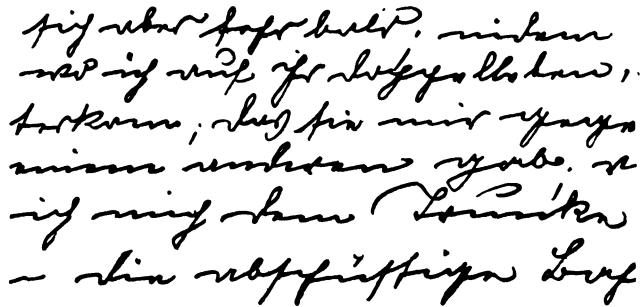 sich aber sehr bald, indem
wo ich auf ihr Doppelleben,
terkam; das sie mir gege
einem anderen gab.
ich mich dem Trunke
die abschüssige Bah